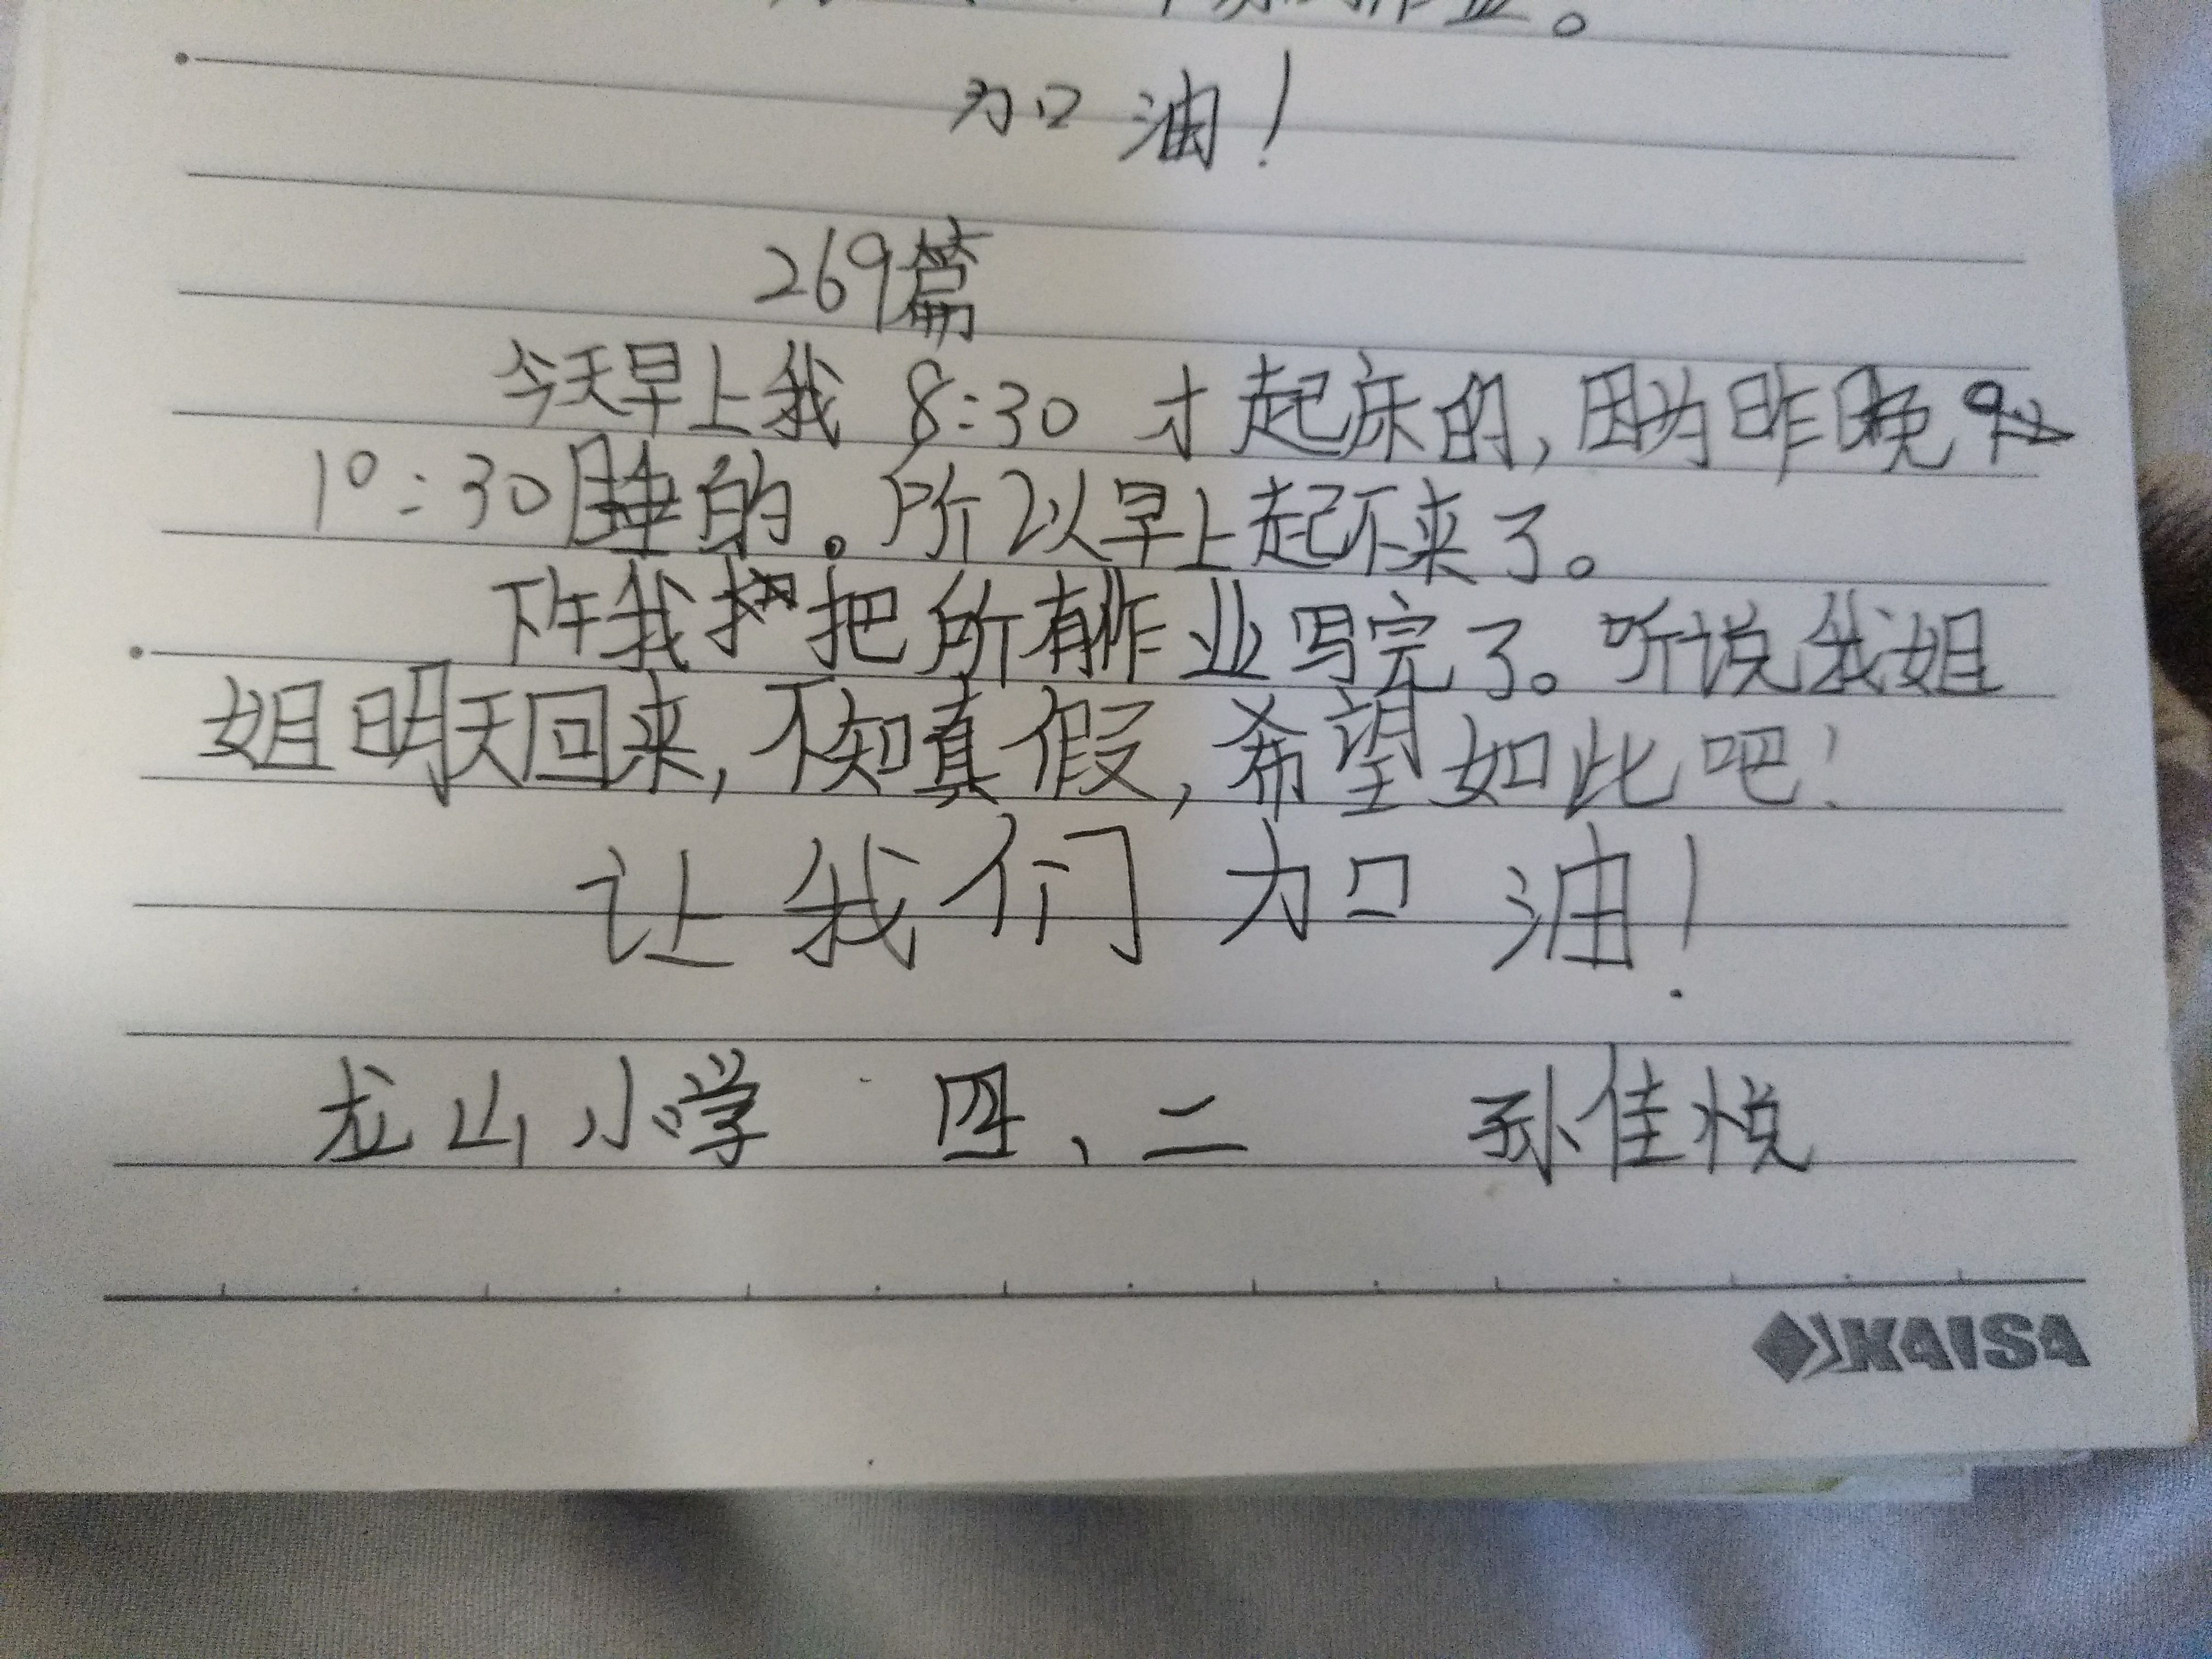 作业。
加油！
269篇
今天早上我 8:30 才起床的，因为昨晚
10:30睡的。所以早上起不来了。
下午我把所有作业写完了。听说我姐
姐明天回来，不知真假，希望如此吧！
让我们加油！
龙山小学 四、二 孙佳悦
KAISA